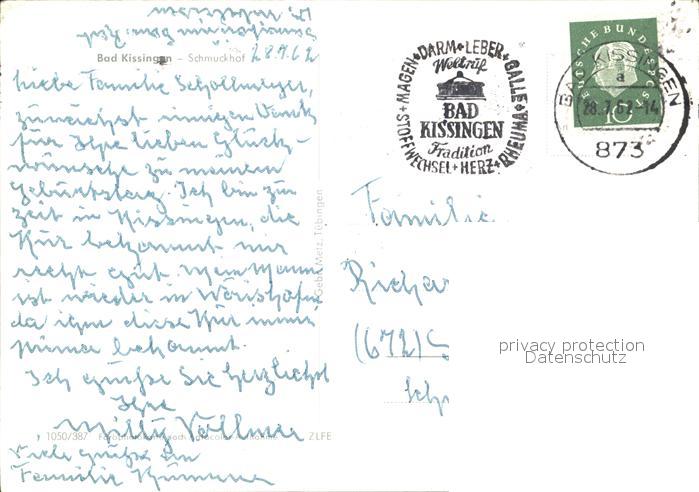 Bad Kissingen – Schmuckhof 28.7.62
Liebe Familie Schollmeyer,
zunächst innigen Dank
für Ihre lieben Glück-
wünsche zu meinem
Geburtstag. Ich bin zur
Zeit in Kissingen, die
Kur bekommt mir
recht gut. Mein Mann
ist wieder in Wörishofen
da ihm diese Kur immer
prima bekommt.
Ich grüße Sie herzlichst
Ihre
Milly Vollmer
Viele Grüße an
Familie
1050/387
ZLFE
Gebr. Metz, Tübingen
MAGEN + DARM + LEBER + GALLE + RHEUMA + HERZ + STOFFWECHSEL
Weltruf
BAD
KISSINGEN
Tradition
DEUTSCHE BUNDESPOST
10
BAD KISSINGEN
a
28.7.62-14
873
Familie
Richar
(672)
Sch
privacy protection
Datenschutz